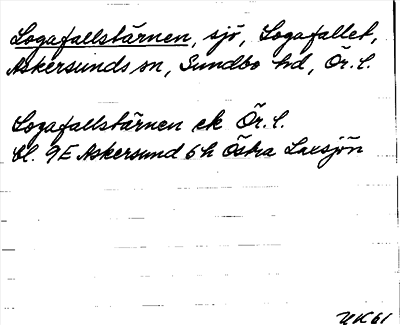 Logafallstärnen, sjö, Logafallet,
Askersunds sn, Sundbo hd, Ör. l.
Logafallstärnen ek Ör. l.
bl. 9E Askersund 6h Östra Laxsjön
UK 61